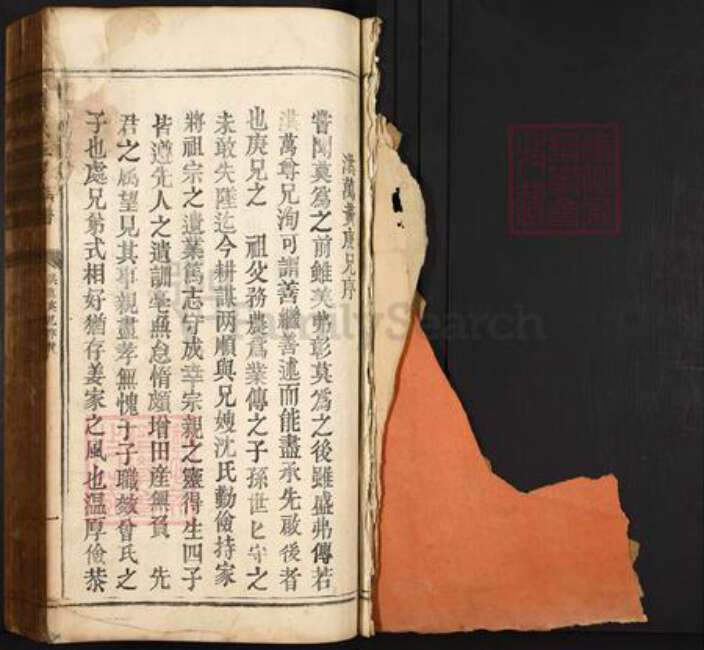 漢萬賡庚兄序
嘗聞莫爲之前雖美弗彰莫爲之後雖盛弗傳若
漢萬尊兄洵可謂善繼善述而能盡承先啟後者
也庚兄之 祖父務農爲業傳之子孫世世守之
未敢失墜迄今耕謀兩順與兄嫂沈氏勤儉持家
將祖宗之遺業篤志守成幸宗親之靈得生四子
皆遵先人之遺訓毫無怠惰頗增田産無負 先
君之屬望見其事親盡孝無愧于子職效曾氏之
子也處兄弟式相好猶存姜家之風也溫厚儉恭
FamilySearch